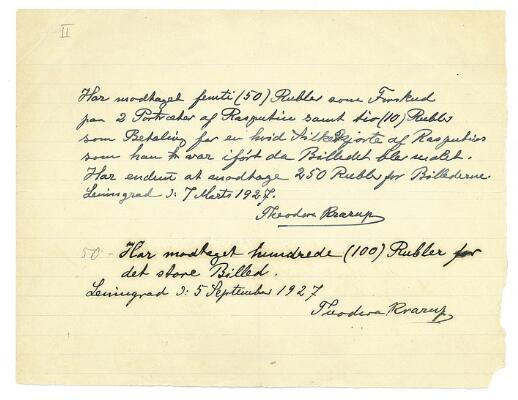 II
Har modtaget femti (50) Rubler som Forskud
paa 2 Portræter af Rasputin samt tio (10) Rubler
som Betaling for en hvid Silkeskjorte af Rasputins
som han var iført da Billedet blev malet.
Har endnu at modtage 250 Rubler for Billederne.
Leningrad d: 7 Marts 1927.
Theodora Krarup
50- Har modtaget hundrede (100) Rubler for
det store Billed.
Leningrad d: 5 September 1927
Theodora Krarup